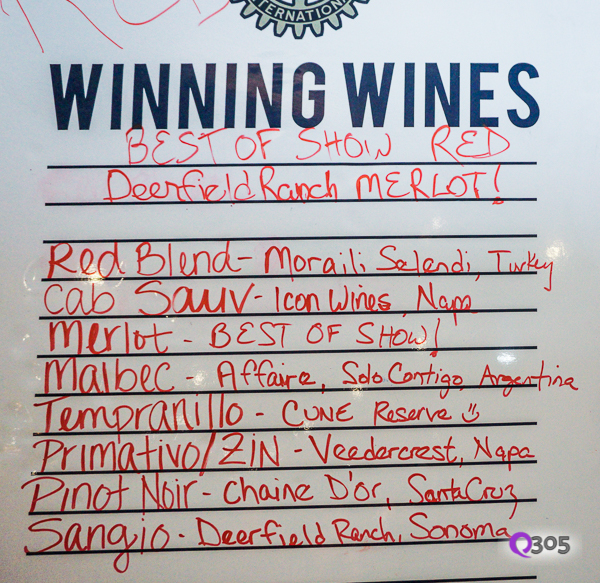 INTERNATIONAL
WINNING WINES
BEST OF SHOW RED
Deerfield Ranch MERLOT!
Red Blend - Moraili Selendi, Turkey
Cab Sauv - Icon Wines, Napa
Merlot - BEST OF SHOW!
Malbec - Affaire, Solo Contigo, Argentina
Tempranillo - CUNE Reserve ☺
Primativo/ZIN - Veedercrest, Napa
Pinot Noir - Chaine D'or, Santa Cruz
Sangio - Deerfield Ranch, Sonoma
305